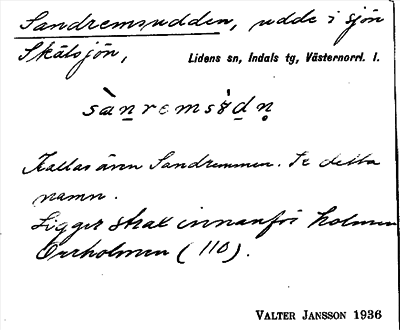 Sandremsudden, udde i sjön
Skälsjön, Lidens sn, Indals tg, Västernorrl. l.
sàn̲remsùd̲n̥
Kallas även Sandremmen. Se detta
namn.
Ligger strax innanför holmen
Orrholmen (110).
VALTER JANSSON 1936